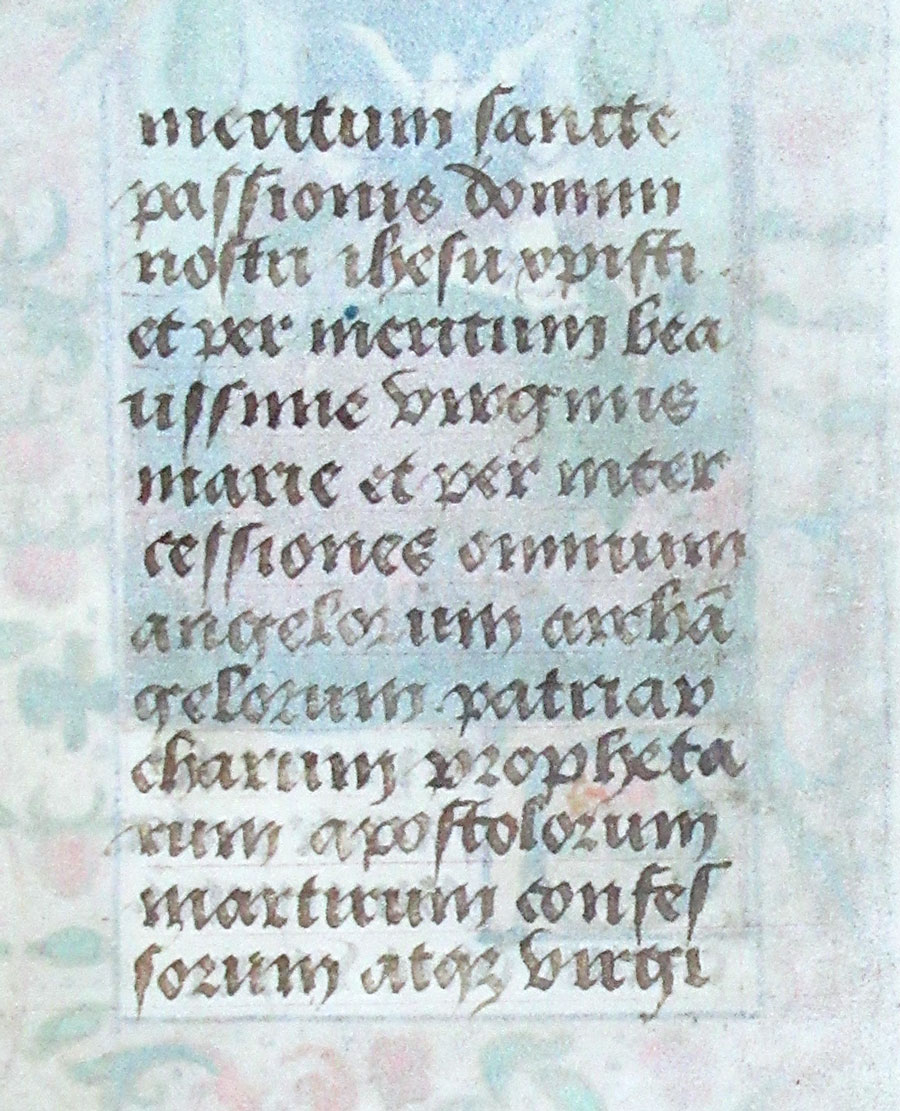 meritum sancte
passionis domini
nostri ihesu xpisti
et per meritum bea
tissime virginis
marie et per inter
cessiones omnium
angelorum archā
gelorum patriar
charum propheta
rum apostolorum
martirum confes
sorum atqꝫ virgi